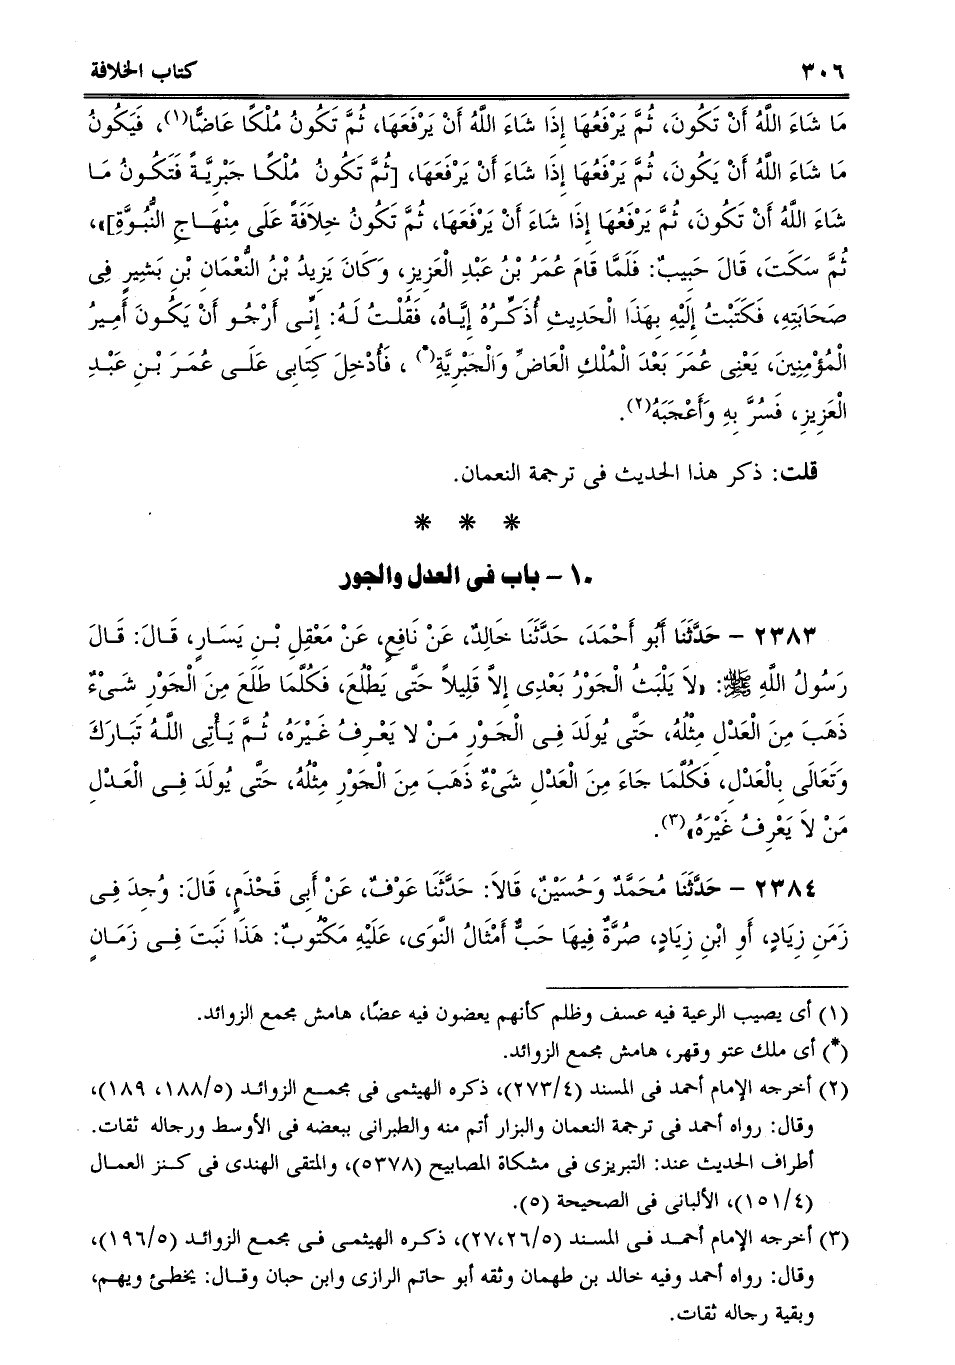 ٣٠٦ كتاب الخلافة
مَا شَاءَ اللَّهُ أَنْ تَكُونَ، ثُمَّ يَرْفَعُهَا إِذَا شَاءَ اللَّهُ أَنْ يَرْفَعَهَا، ثُمَّ تَكُونُ مُلْكًا عَاضًّا(١)، فَيَكُونُ
مَا شَاءَ اللَّهُ أَنْ يَكُونَ، ثُمَّ يَرْفَعُهَا إِذَا شَاءَ أَنْ يَرْفَعَهَا، [ثُمَّ تَكُونُ مُلْكًا جَبْرِيَّةً فَتَكُونُ مَا
شَاءَ اللَّهُ أَنْ تَكُونَ، ثُمَّ يَرْفَعُهَا إِذَا شَاءَ أَنْ يَرْفَعَهَا، ثُمَّ تَكُونُ خِلاَفَةً عَلَى مِنْهَاجِ النُّبُوَّةِ]»،
ثُمَّ سَكَتَ، قَالَ حَبِيبٌ: فَلَمَّا قَامَ عُمَرُ بْنُ عَبْدِ الْعَزِيزِ، وَكَانَ يَزِيدُ بْنُ النُّعْمَانِ بْنِ بَشِيرٍ فِى
صَحَابَتِهِ، فَكَتَبْتُ إِلَيْهِ بِهَذَا الْحَدِيثِ أُذَكِّرُهُ إِيَّاهُ، فَقُلْتُ لَهُ: إِنِّى أَرْجُو أَنْ يَكُونَ أَمِيرُ
الْمُؤْمِنِينَ، يَعْنِى عُمَرَ بَعْدَ الْمُلْكِ الْعَاضِّ وَالْجَبْرِيَّةِ(*)، فَأُدْخِلَ كِتَابِى عَلَى عُمَرَ بْنِ عَبْدِ
الْعَزِيزِ، فَسُرَّ بِهِ وَأَعْجَبَهُ(٢).
قلت: ذكر هذا الحديث فى ترجمة النعمان.
* * *
١٠ - باب فى العدل والجور
٢٣٨٣ - حَدَّثَنَا أَبُو أَحْمَدَ، حَدَّثَنَا خَالِدٌ، عَنْ نَافِعٍ، عَنْ مَعْقِلِ بْنِ يَسَارٍ، قَالَ: قَالَ
رَسُولُ اللَّهِ ﷺ: «لاَ يَلْبَثُ الْجَوْرُ بَعْدِى إِلاَّ قَلِيلاً حَتَّى يَطْلُعَ، فَكُلَّمَا طَلَعَ مِنَ الْجَوْرِ شَىْءٌ
ذَهَبَ مِنَ الْعَدْلِ مِثْلُهُ، حَتَّى يُولَدَ فِى الْجَوْرِ مَنْ لا يَعْرِفُ غَيْرَهُ، ثُمَّ يَأْتِى اللَّهُ تَبَارَكَ
وَتَعَالَى بِالْعَدْلِ، فَكُلَّمَا جَاءَ مِنَ الْعَدْلِ شَىْءٌ ذَهَبَ مِنَ الْجَوْرِ مِثْلُهُ، حَتَّى يُولَدَ فِى الْعَدْلِ
مَنْ لاَ يَعْرِفُ غَيْرَهُ»(٣).
٢٣٨٤ - حَدَّثَنَا مُحَمَّدٌ وَحُسَيْنٌ، قَالاَ: حَدَّثَنَا عَوْفٌ، عَنْ أَبِى قَحْذَمٍ، قَالَ: وُجِدَ فِى
زَمَنِ زِيَادٍ، أَوِ ابْنِ زِيَادٍ، صُرَّةٌ فِيهَا حَبٌّ أَمْثَالُ النَّوَى، عَلَيْهِ مَكْتُوبٌ: هَذَا نَبَتَ فِى زَمَانٍ
(١) أى يصيب الرعية فيه عسف وظلم كأنهم يعضون فيه عضًا، هامش مجمع الزوائد.
(*) أى ملك عتو وقهر، هامش مجمع الزوائد.
(٢) أخرجه الإمام أحمد فى المسند (٢٧٣/٤)، ذكره الهيثمى فى مجمع الزوائد (١٨٨/٥، ١٨٩)،
وقال: رواه أحمد فى ترجمة النعمان والبزار أتم منه والطبرانى ببعضه فى الأوسط ورجاله ثقات.
أطراف الحديث عند: التبريزى فى مشكاة المصابيح (٥٣٧٨)، والمتقى الهندى فى كنز العمال
(١٥١/٤)، الألبانى فى الصحيحة (٥).
(٣) أخرجه الإمام أحمد فى المسند (٢٧،٢٦/٥)، ذكره الهيثمى فى مجمع الزوائد (١٩٦/٥)،
وقال: رواه أحمد وفيه خالد بن طهمان وثقه أبو حاتم الرازى وابن حبان وقال: يخطئ ويهم،
وبقية رجاله ثقات.